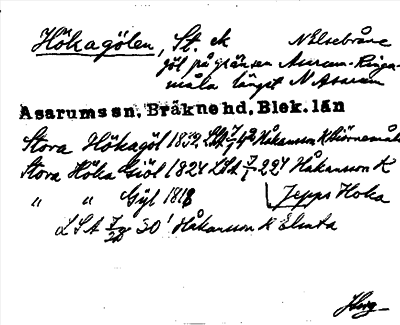 Hökagölen, St. ek N Elsebråne
göl på gränsen Asarum-Ringa-
måla längst N Asarum
Asarums sn, Bräkne hd, Blek. län
Stora Hökagöl 1832 LSA Håkansson K Björnemåla
Stora Höka Giöl 1824 LSA 227 Håkansson K
" " Gyl 1818 Jepps Hoka
LSA 30 Håkansson K Elsata